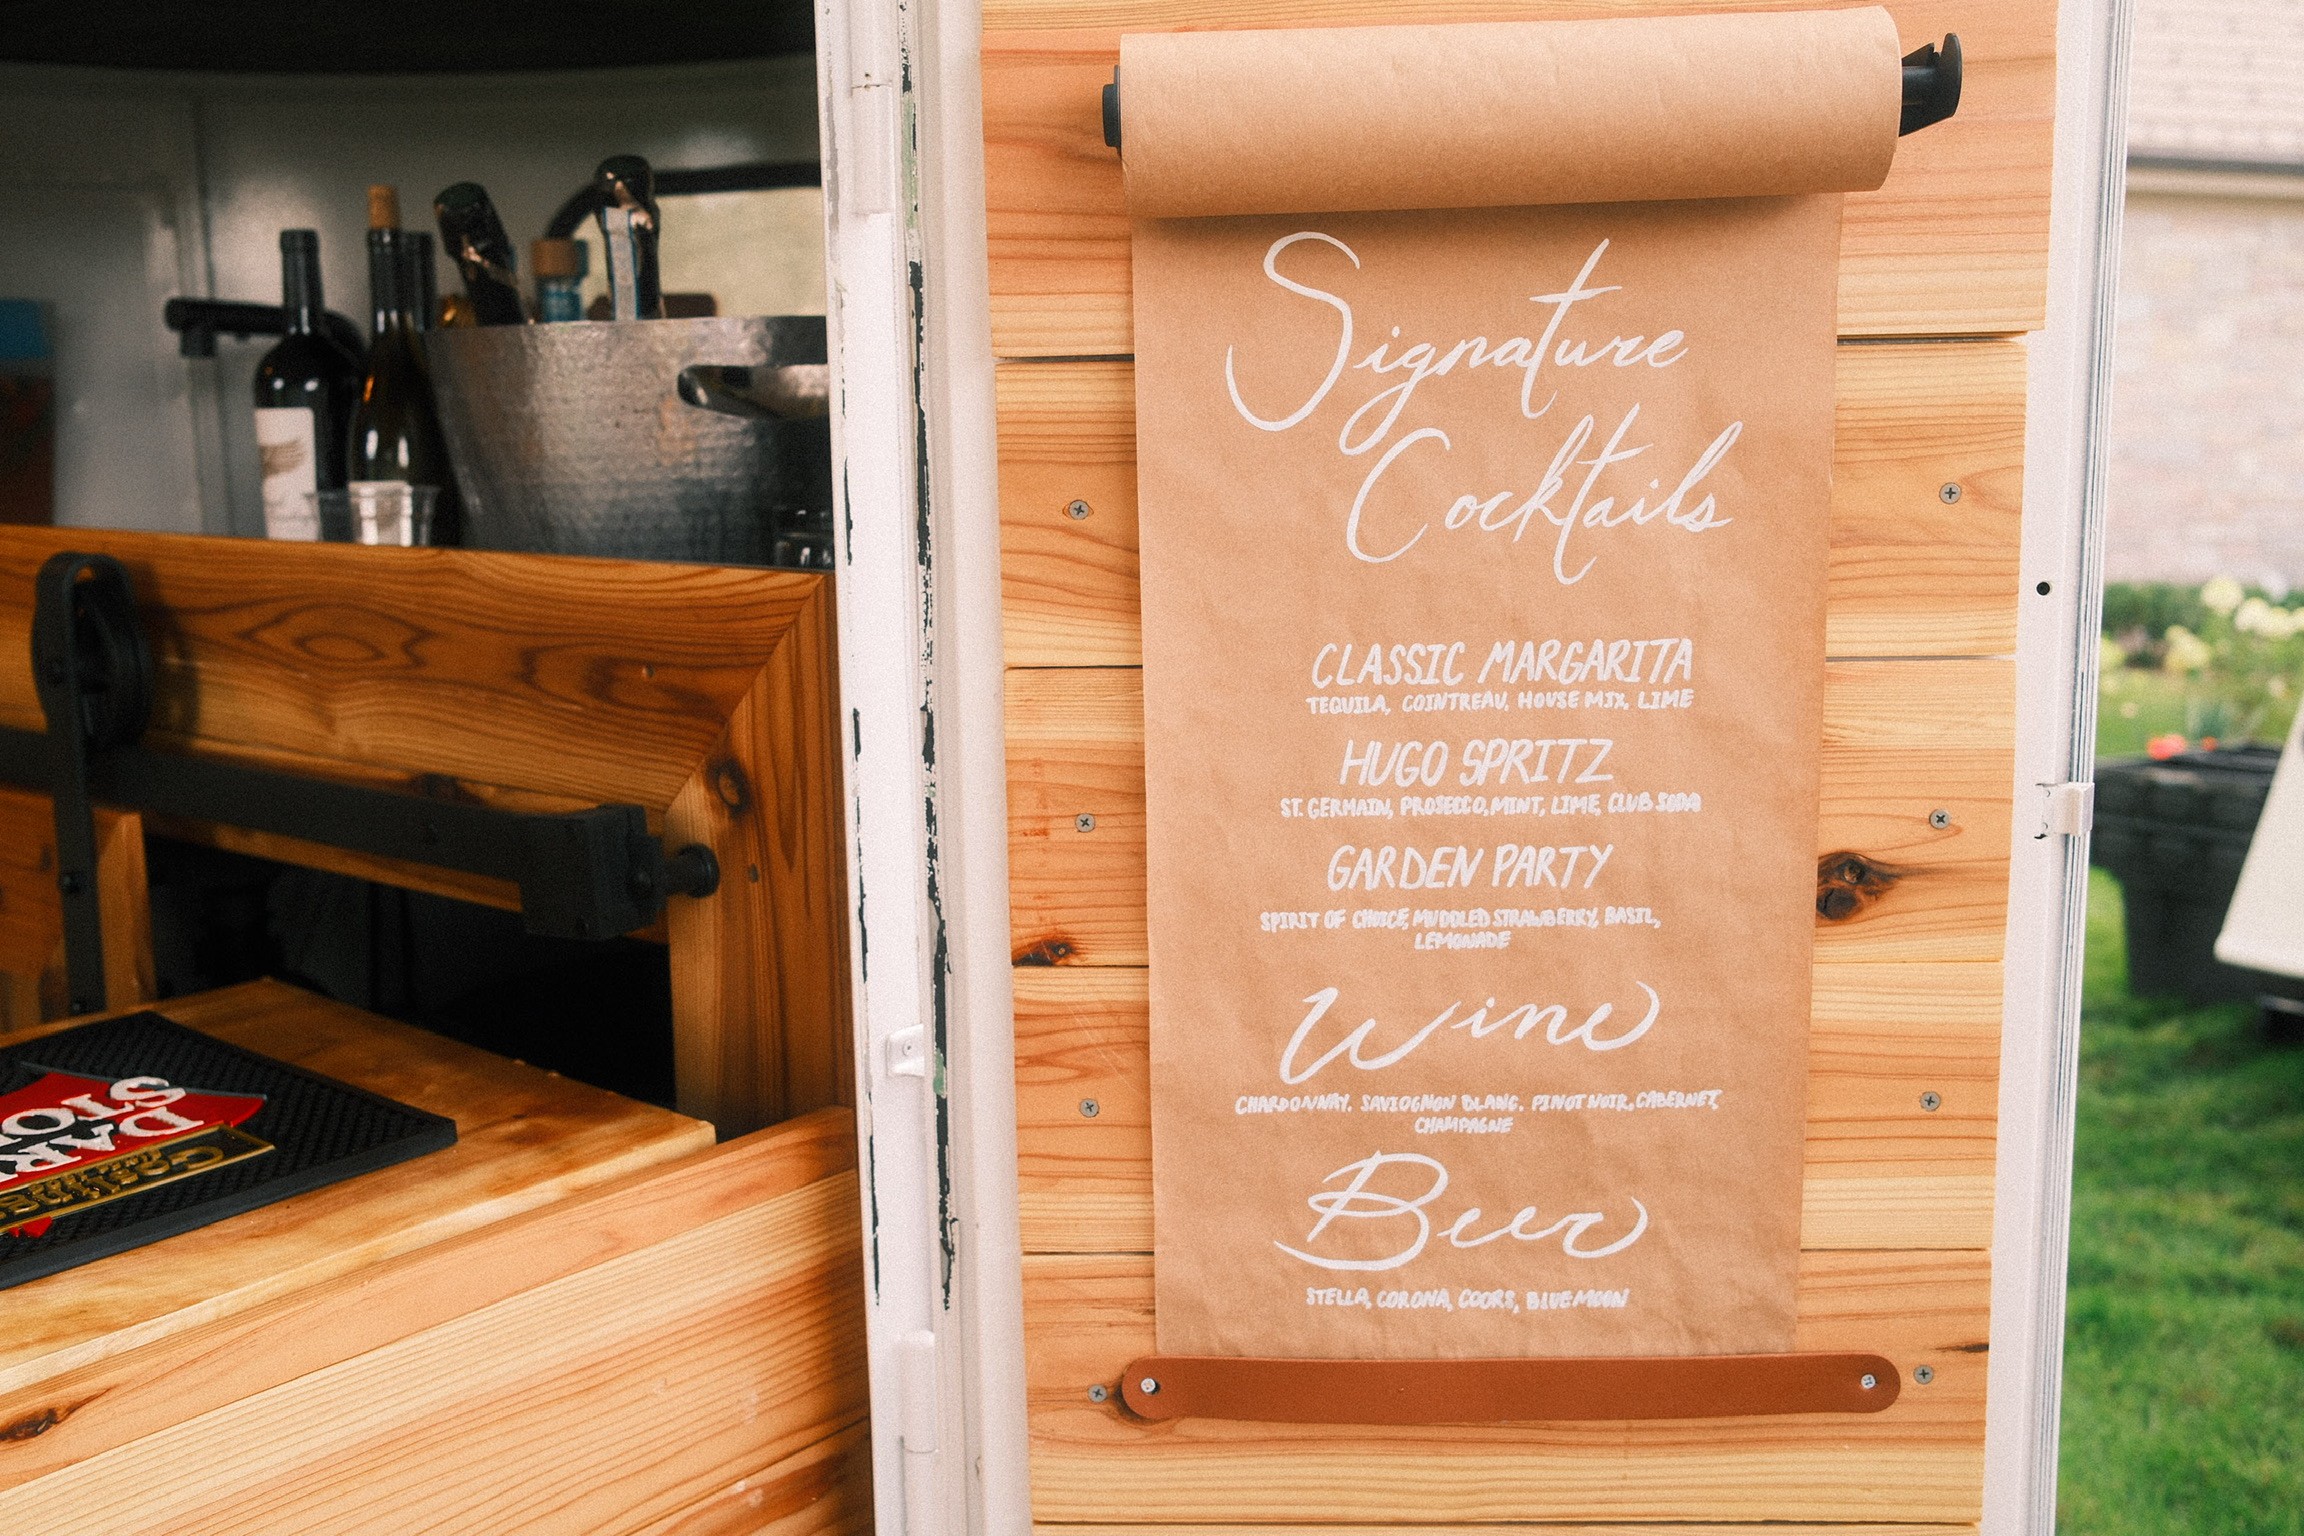 Signature
Cocktails
CLASSIC MARGARITA
TEQUILA, COINTREAU, HOUSE MIX, LIME
HUGO SPRITZ
ST. GERMAIN, PROSECCO, MINT, LIME, CLUB SODA
GARDEN PARTY
SPIRIT OF CHOICE, MUDDLED STRAWBERRY, BASIL,
LEMONADE
Wine
CHARDONNAY. SAVIOGNON BLANC. PINOT NOIR, CABERNET,
CHAMPAGNE
Beer
STELLA, CORONA, COORS, BLUE MOON
DARK
STO